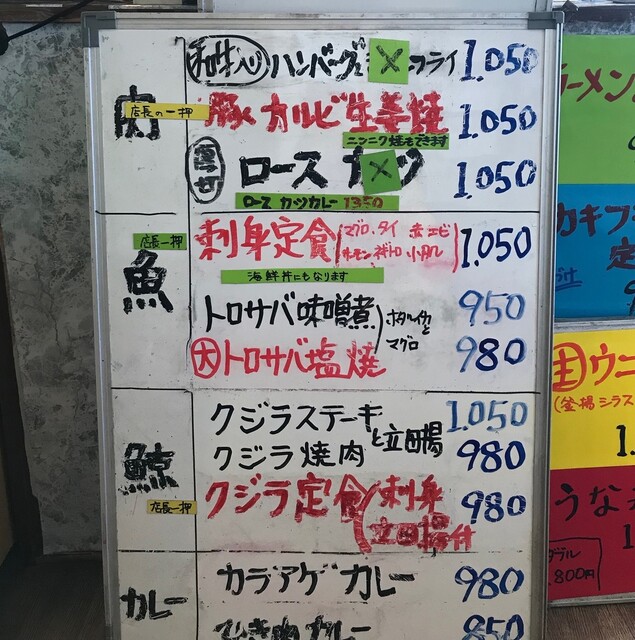 肉
店長の一押
和牛入り ハンバーグと フライ 1.050
豚カルビ生姜焼 1.050
ニンニク焼もできます
厚切 ロース カツ 1.050
ロース カツカレー 1350
魚
店長一押
刺身定食 1.050
マグロ、タイ 赤エビ
サーモン ネギトロ 小鉢
海鮮丼にもなります
トロサバ味噌煮 950
ホタルイカと
マグロ
大トロサバ塩焼 980
鯨
店長一押
クジラステーキ 1.050
と立田揚
クジラ焼肉 980
クジラ定食 刺身 980
立田揚付
カレー
カラアゲカレー 980
ひき肉カレー 850
ラーメン
カキフ
定
主 ウニ
(釜揚シラス
1.
うな
1
800円